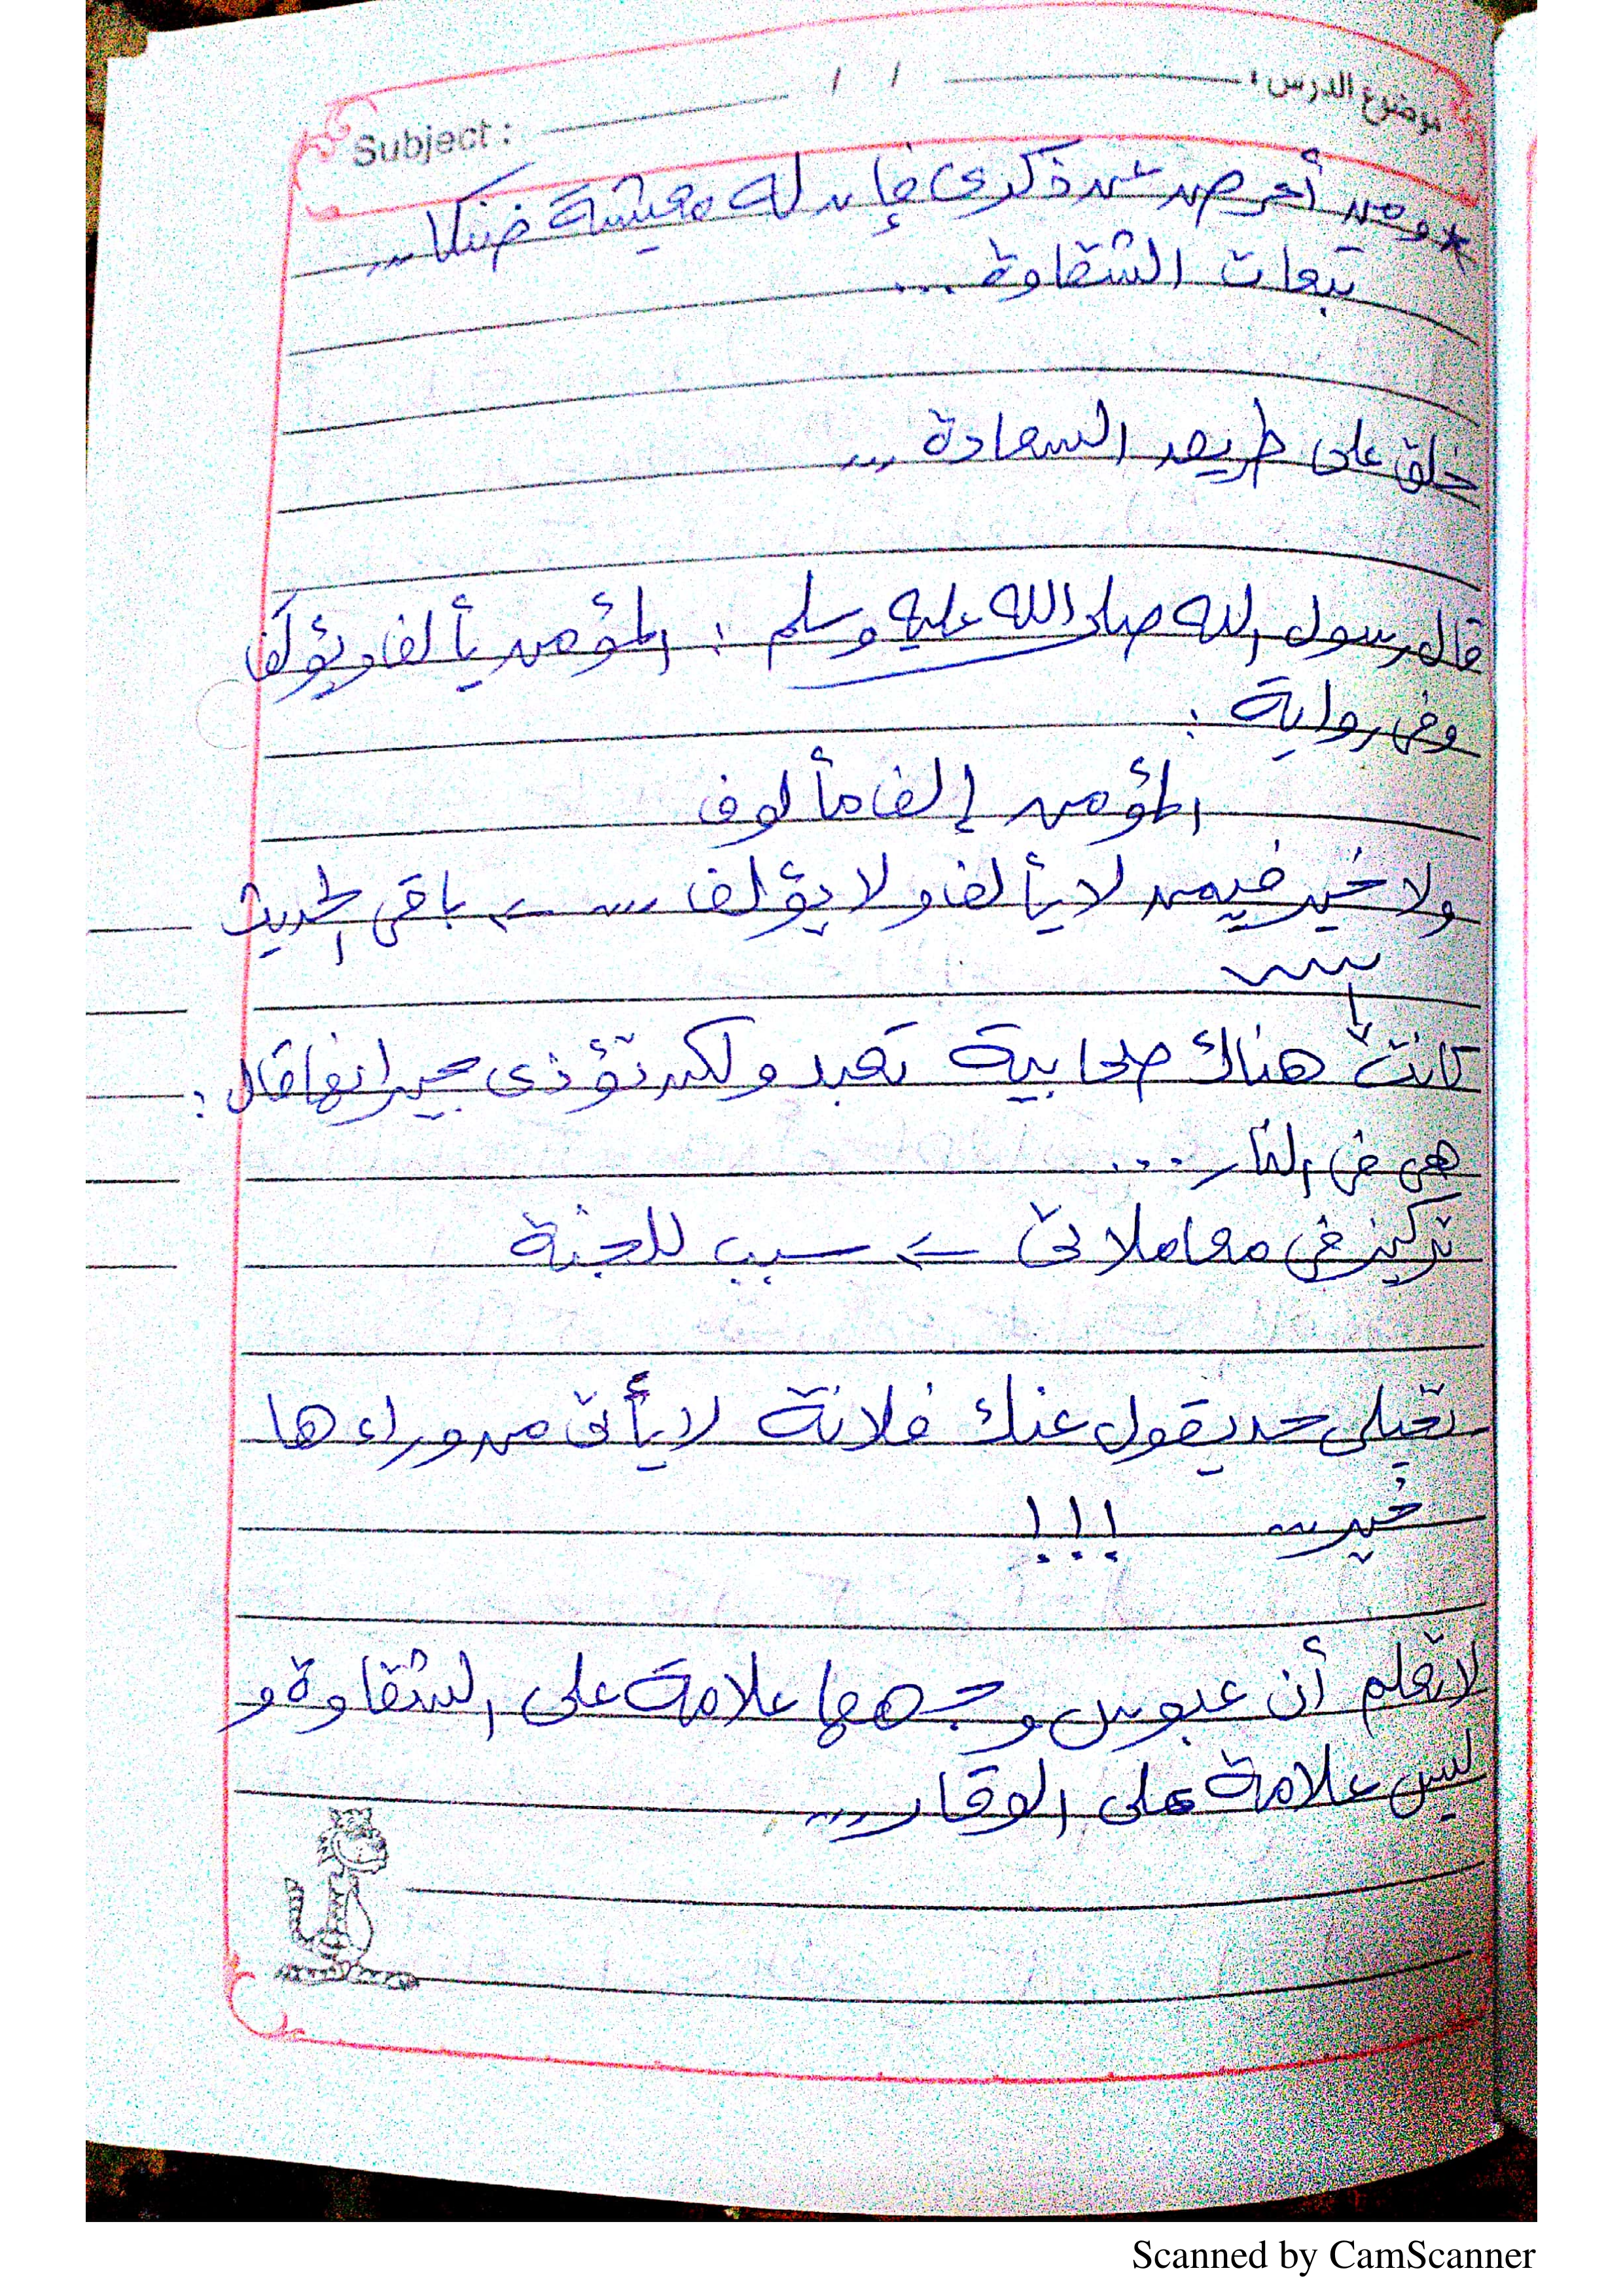 موضوع الدرس : / / Subject :
* ومن أعرض عن ذكرى فإن له معيشة ضنكا ...
تبعات الشقاوة ...
خلق على طريق السعادة ...
قال رسول الله صلى الله عليه وسلم : المؤمن يألف ويؤلَف
وفى رواية :
المؤمن إلف مألوف
ولا خير فيمن لا يألف ولا يؤلف ... ← باقى الحديث
كانت هناك صحابية تعبد ولكن تؤذى جيرانها قال :
هى فى النار ...
تركيز فى معاملاتى ← سبب للجنة
تخيلى حد يقول عنك فلانة لا يأتى من وراءها
خير ... !!!
لا تعلم أن عبوس وجهها علامة على الشقاوة و
ليس علامة على الوقار ...
Scanned by CamScanner